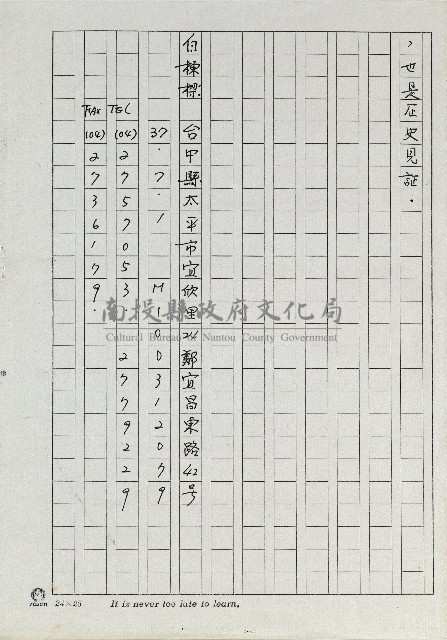 ，也是歷史見証．
白棟樑　台中縣太平市宜欣里24鄰宜昌東路42号
37.7.1　M100312079
TEL (04)2757053．2779229
FAX (04)2736179．
南投縣政府文化局
Cultural Bureau of Nantou County Government
24×25 It is never too late to learn.